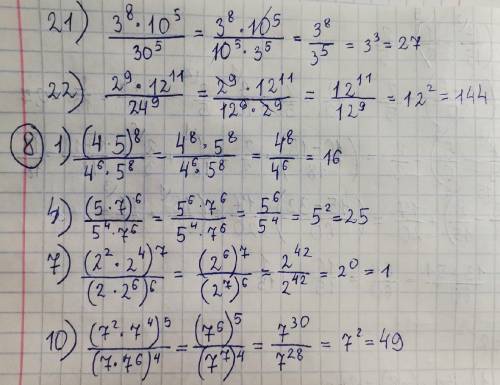 21) 3⁸·10⁵/30⁵ = 3⁸·10⁵/10⁵·3⁵ = 3⁸/3⁵ = 3³ = 27
22) 2⁹·12¹¹/24⁹ = 2⁹·12¹¹/12⁹·2⁹ = 12¹¹/12⁹ = 12² = 144
8 1) (4·5)⁸/4⁶·5⁸ = 4⁸·5⁸/4⁶·5⁸ = 4⁸/4⁶ = 16
4) (5·7)⁶/5⁴·7⁶ = 5⁶·7⁶/5⁴·7⁶ = 5⁶/5⁴ = 5² = 25
7) (2²·2⁴)⁷/(2·2⁶)⁶ = (2⁶)⁷/(2⁷)⁶ = 2⁴²/2⁴² = 2⁰ = 1
10) (7²·7⁴)⁵/(7·7⁶)⁴ = (7⁶)⁵/(7⁷)⁴ = 7³⁰/7²⁸ = 7² = 49